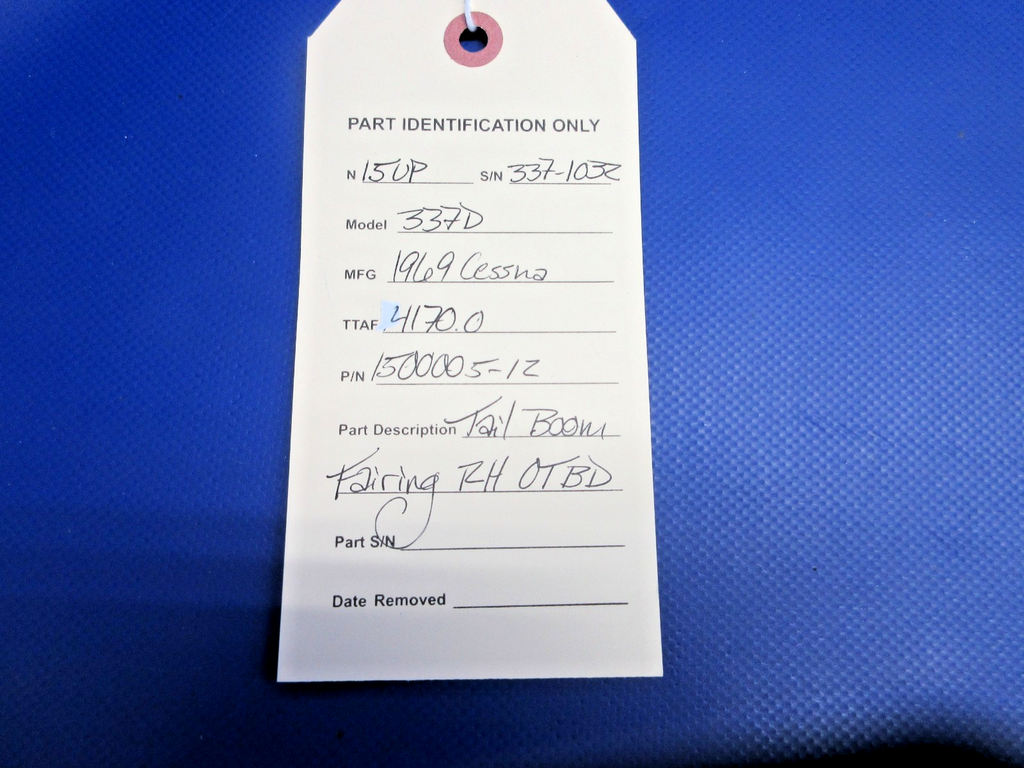 PART IDENTIFICATION ONLY
N 15UP S/N 337-1032
Model 337D
MFG 1969 Cessna
TTAF 4170.0
P/N 1500005-12
Part Description Tail Boom
Fairing RH OTBD
Part S/N
Date Removed